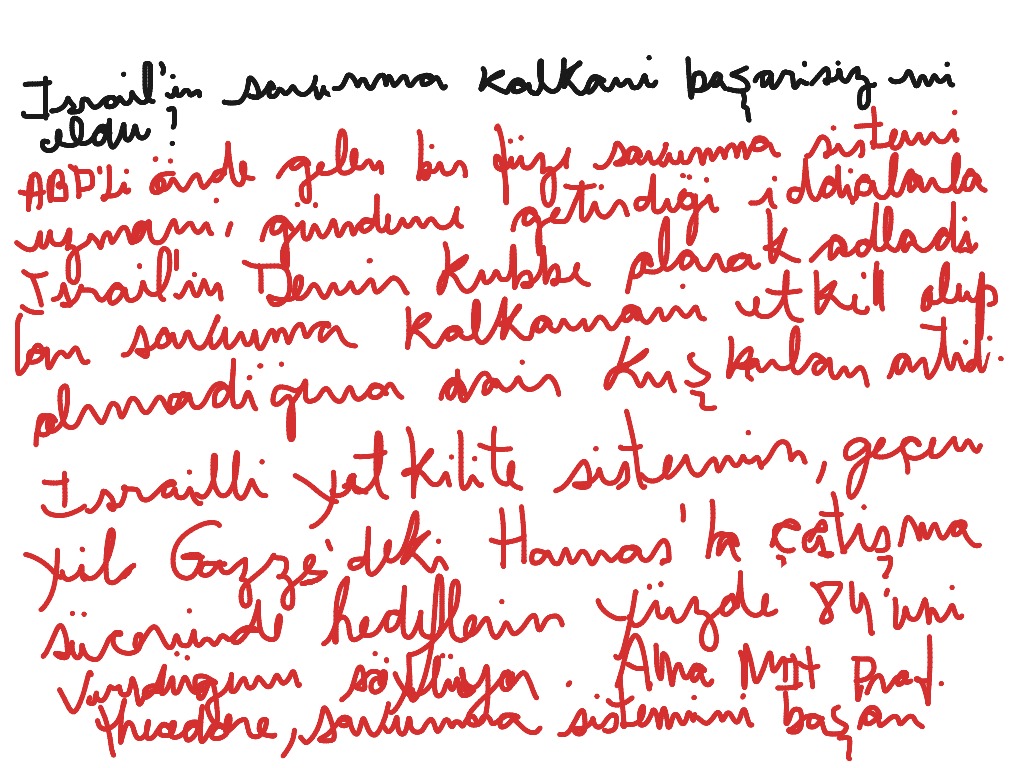 İsrail'in savunma kalkanı başarısız mı
oldu?
ABD'li önde gelen bir füze savunma sistemi
uzmanı, gündeme getirdiği iddialarla
İsrail'in Demir Kubbe olarak adlandırı
lan savunma kalkanının etkili olup
olmadığına dair kuşkuları artırdı.
İsrailli yetkililer sistemin, geçen
yıl Gazze'deki Hamas'la çatışma
sürecinde hedeflerin yüzde 84'ünü
vurduğunu söylüyor. Ama MIT Prof.
Theodore, savunma sistemini başarı